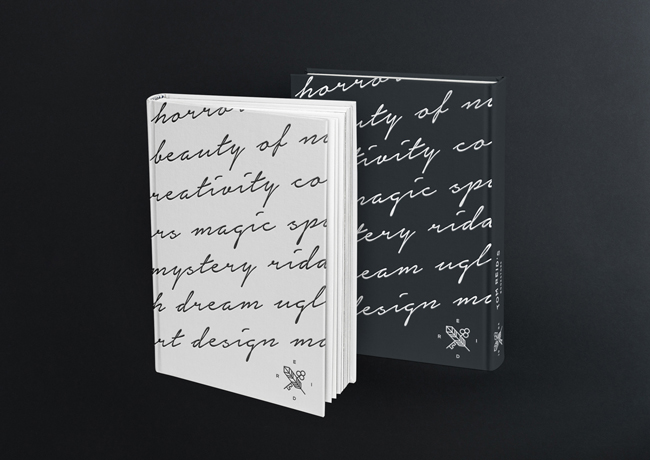 horror
beauty of m
reativity co
rs magic spi
mystery rida
h dream ugl
rt design mo
E
R I
D
horror
uty of m
tivity co
magic spi
tery rida
eam ugl
design mo
E
R I
D
TOM REID'S